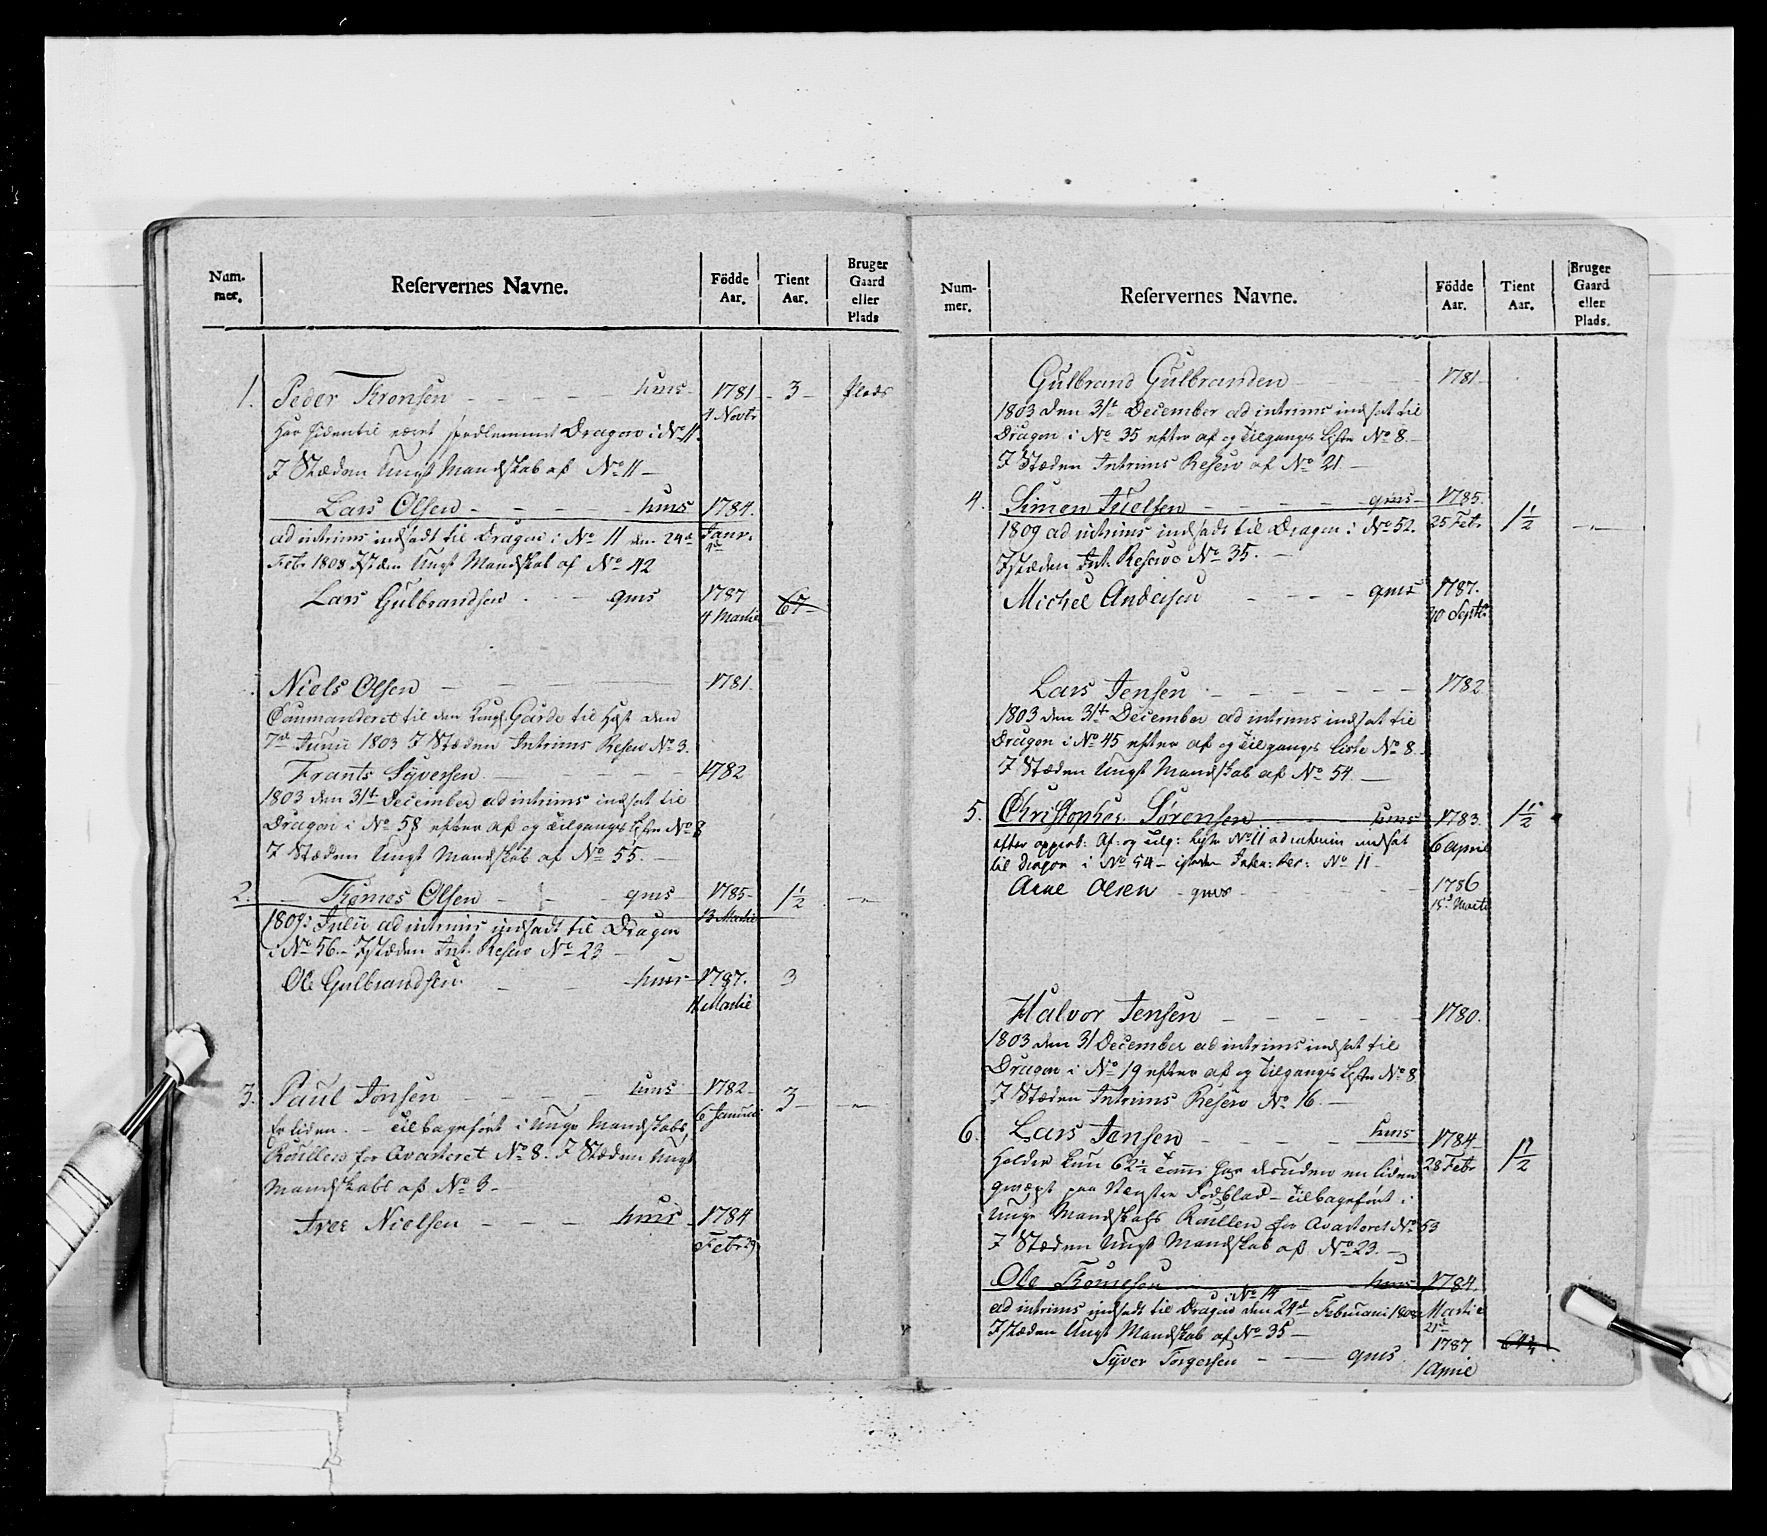 Num-
mer.
Reservernes Navne.
Födde
Aar.
Tient
Aar.
Bruger
Gaard
eller
Plads
1. Peder Tronsen hms 1781 3 Plads
4 Novbr
Har hidentil været Dragon i No 11
I Stæden Ungt Mandskab af No 11
Lars Olsen hms 1784.
ad intrims indsadt til Dragon i No 11 den 24de Janr.
Febr 1808 Istæden Ungt Mandskab af No 42
Lars Gulbrandsen qms 1787
4 Martii
Niels Olsen 1781.
Commanderet til den Kongl. Garde til Hest den
7de Junii 1803 I Stæden Intrims Reserv No 3.
Frants Syversen 1782
1803 den 31te December ad intrims indsat til
Dragon i No 58 efter af og Tilgangs Liste No 8
I Stæden Ungt Mandskab af No 55.
2. Tomes Olsen qms 1785 1½
13 Martii
1809: Julii ad intrims indsadt til Dragon
i No 56. Istæden Int. Reserv No 23
Ole Gulbrandsen hms 1787. 3
11 Martii
3. Paul Jonsen hms 1782 3
6 Januari
Er liden. Tilbageført i Unge Mandskabs
Roullen for Qvarteret No 8. I Stæden Ungt
Mandskabs af No 3
Iver Nielsen hms 1784
Febr 29
Num-
mer.
Reservernes Navne.
Födde
Aar.
Tient
Aar.
Bruger
Gaard
eller
Plads.
Gulbrand Gulbranden 1781
1803 den 31te December ad intrims indsat til
Dragon i No 35 efter af og Tilgangs Liste No 8
I Stæden Intrims Reserv af No 21
4. Simen Juelsen qms 1785. 1½
25 Febr
1809 ad intrims indsadt til Dragon i No 52.
Istæden Int. Reserve No 35.
Michel Andersen qms 1787.
Septbr
Lars Jensen 1782
1803 den 31te December ad intrims indsat til
Dragon i No 45 efter af og Tilgangs Liste No 8
I Stæden Ungt Mandskab af No 54
5. Christopher Sørensen hms 1783. 1½
6 April
efter approb: Af: og tilg: Liste No 11 ad interim indsat
til Dragon i No 54 isteden Inter: Res: No 11
Arne Olsen qms 1786
15d Marti
Halvor Jensen 1780.
1803 den 31 December ad intrims indsat til
Dragon i No 19 efter af og Tilgangs Liste No 8
I Stæden Intrims Reserv No 16.
6. Lars Jensen hms 1784 1½
Holder kun 62½ Tom. har desuden en liden 28 Febr
paa Venstre Fodblad Tilbageført i
Unge Mandskabs Roullen for Qvarteret No 53
I Stæden Ungt Mandskab af No 23.
Ole Tomesen hms 1784.
i No 14
ad intrims indsadt til Dragon den 24de Februarii 1808 Martii
21de
Istæden Ungt Mandskab af No 35
Syver Torgersen qms 1787
1 April